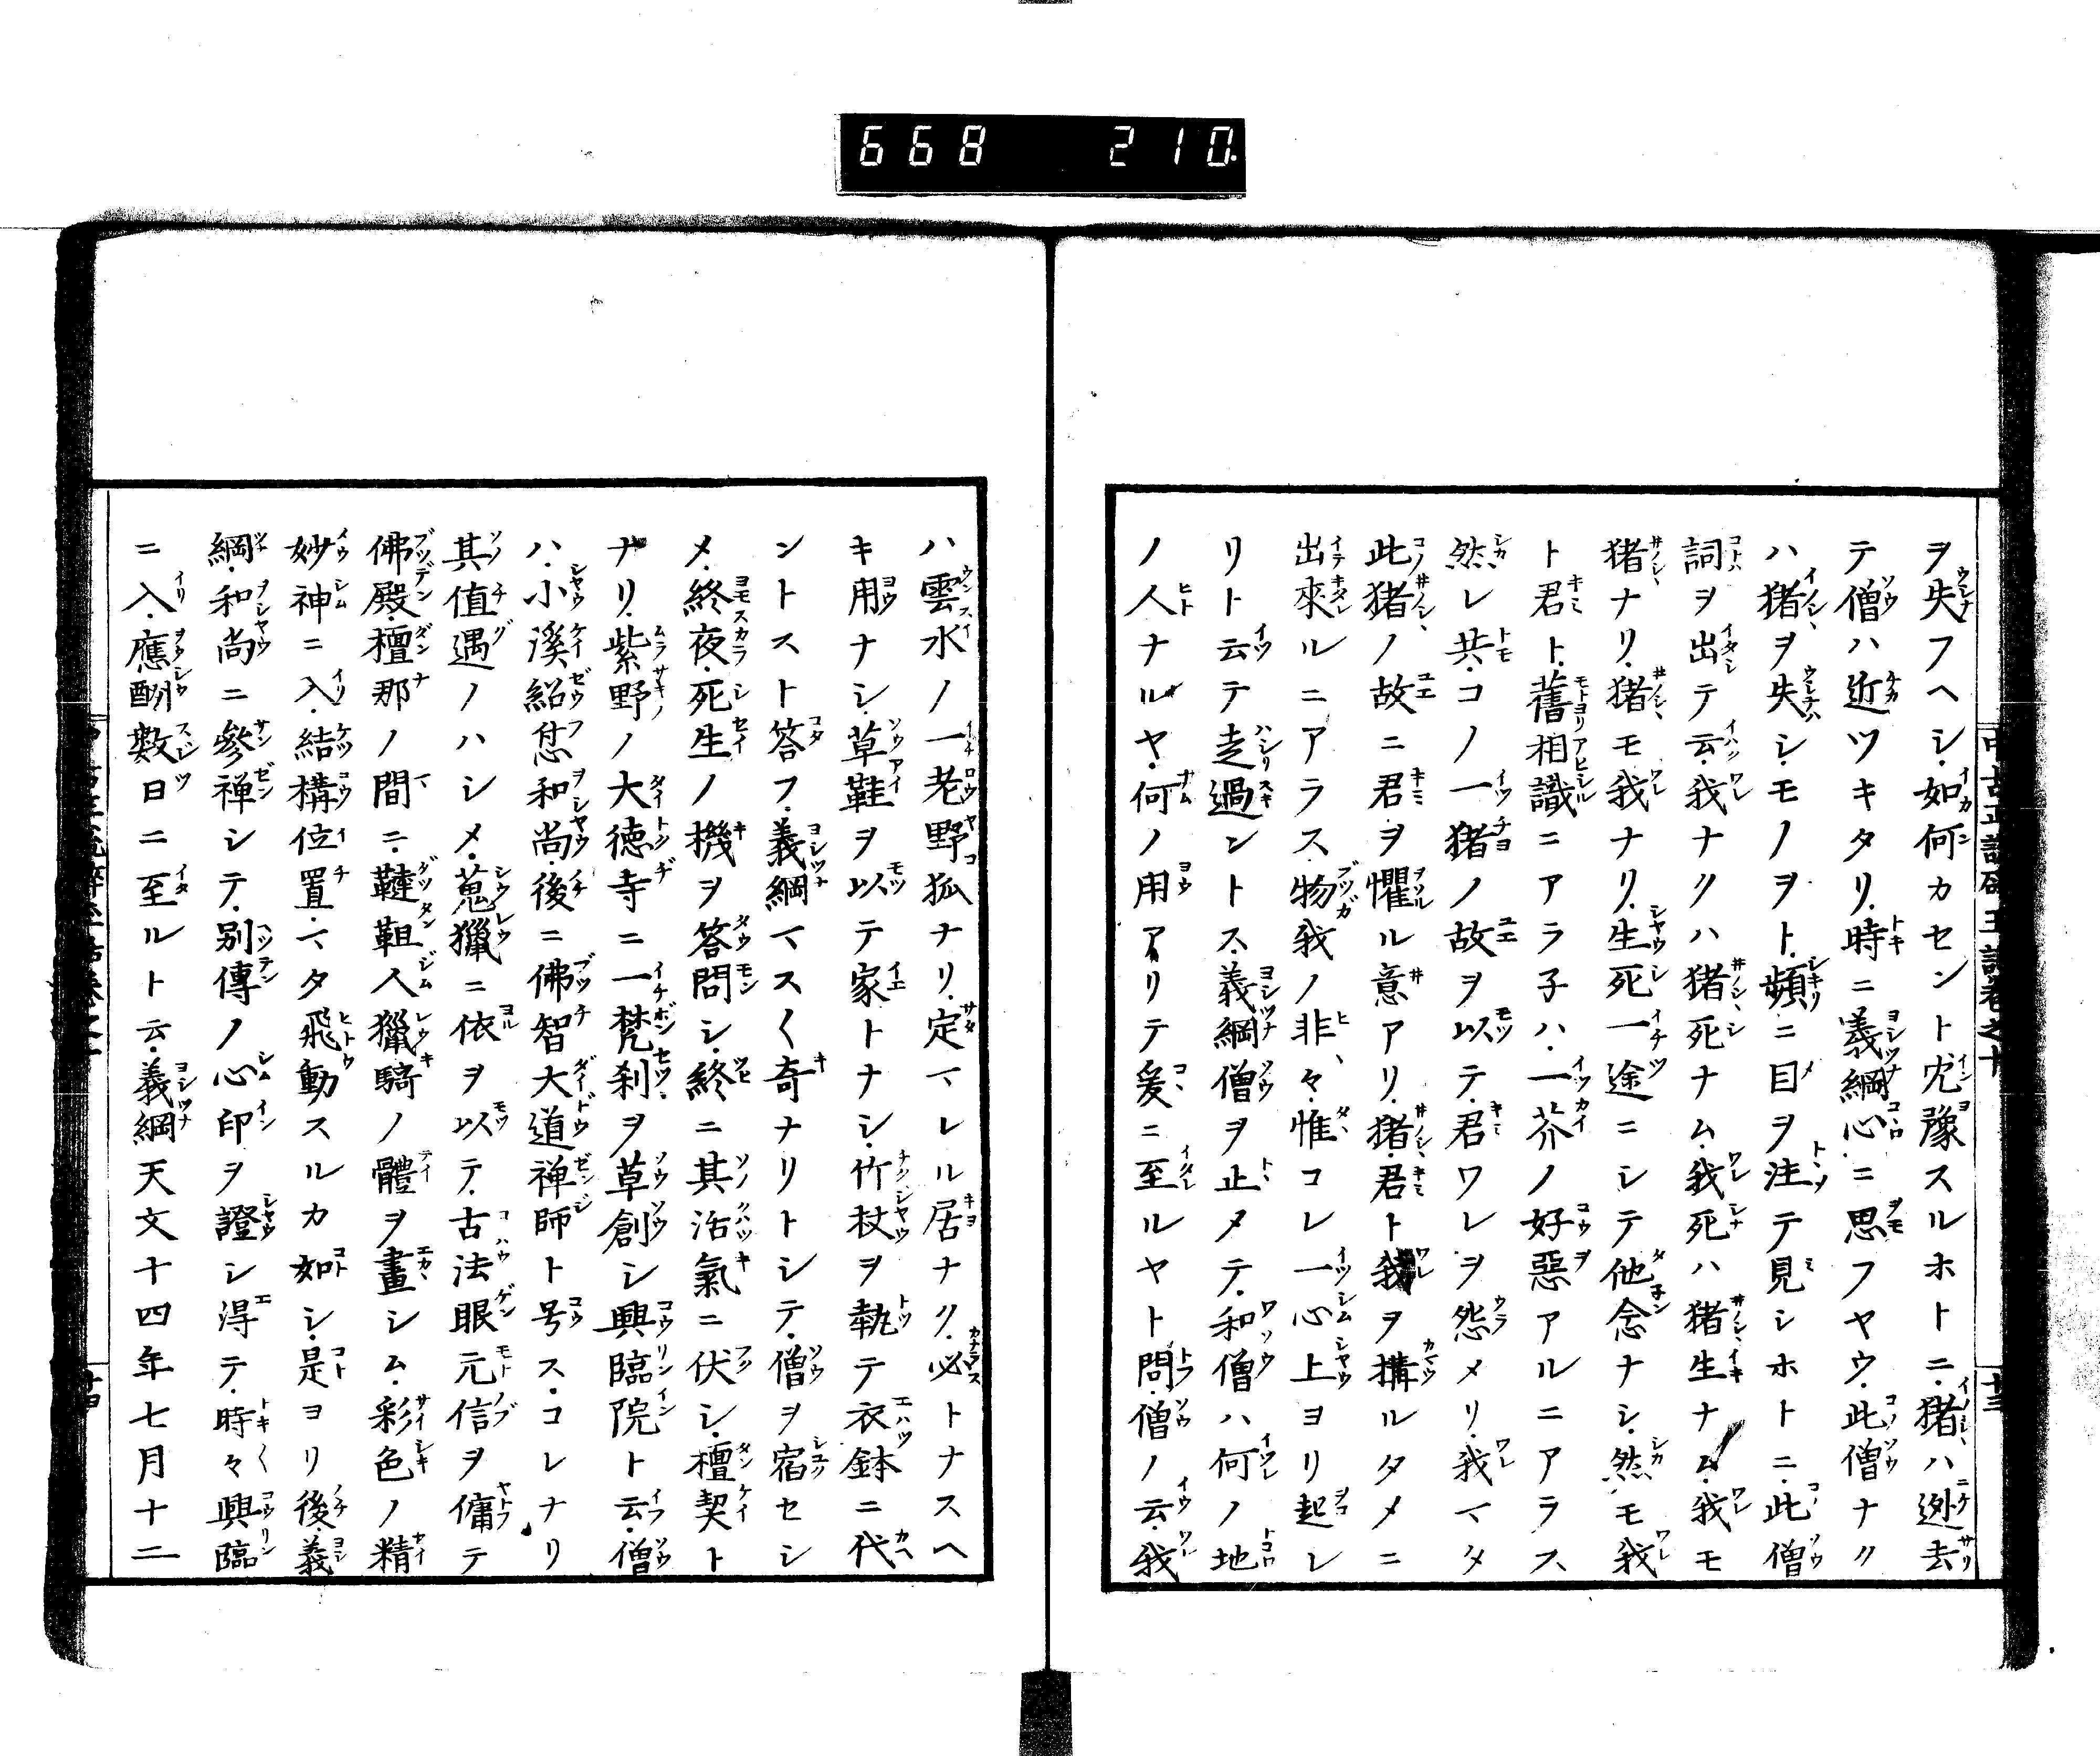 668 210.
ヲ失フヘシ.如何カセント冘豫スルホトニ.猪ハ迯去
テ僧ハ近ツキタリ.時ニ義綱心ニ思フヤウ.此僧ナク
ハ猪ヲ失シ.モノヲト.頻ニ目ヲ注テ見シホトニ.此僧
詞ヲ出テ云.我ナクハ猪死ナム.我死ハ猪生ナム.我モ
猪ナリ.猪モ我ナリ.生死一途ニシテ他念ナシ.然モ我
ト君ト.舊相識ニアラ子ハ.一芥ノ好惡アルニアラス
然レ共.コノ一猪ノ故ヲ以テ.君ワレヲ怨メリ.我マタ
此猪ノ故ニ君ヲ懼ル意アリ.猪.君ト我ヲ構ルタメニ
出來ルニアラス.物我ノ非々.惟コレ一心上ヨリ起レ
リト云テ走過ントス.義綱僧ヲ止メテ.和僧ハ何ノ地
ノ人ナルヤ.何ノ用アリテ爰ニ至ルヤト問.僧ノ云.我
ハ雲水ノ一老野狐ナリ.定マレル居ナク.必トナスヘ
キ用ナシ.草鞋ヲ以テ家トナシ.竹杖ヲ執テ衣鉢ニ代
ントスト答フ.義綱マス〱奇ナリトシテ.僧ヲ宿セシ
メ.終夜.死生ノ機ヲ答問シ.終ニ其活氣ニ伏シ.檀契ト
ナリ.紫野ノ大德寺ニ一梵刹ヲ草創シ興臨院ト云.僧
ハ.小溪紹㤙和尚.後ニ佛智大道禅師ト号ス.コレナリ
其値遇ノハシメ.蒐獵ニ依ヲ以テ.古法眼元信ヲ傭テ
佛殿.檀那ノ間ニ.韃靼人獵騎ノ體ヲ畫シム.彩色ノ精
妙神ニ入.結構位置.マタ飛動スルカ如シ.是ヨリ後.義
綱.和尚ニ參禅シテ.別傳ノ心印ヲ證シ得テ.時々興臨
ニ入.應酬數日ニ至ルト云.義綱天文十四年七月十二